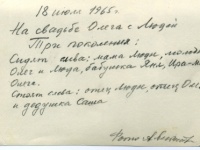 18 июля 1965 г.
На свадьбе Олега с Людой
Три поколения:
Сидят слева: мама Люды, молодые
Олег и Люда, бабушка Яня, Ира-
Олега.
Стоят слева: отец Люды, отец Ол
и дедушка Саша
Фото А.